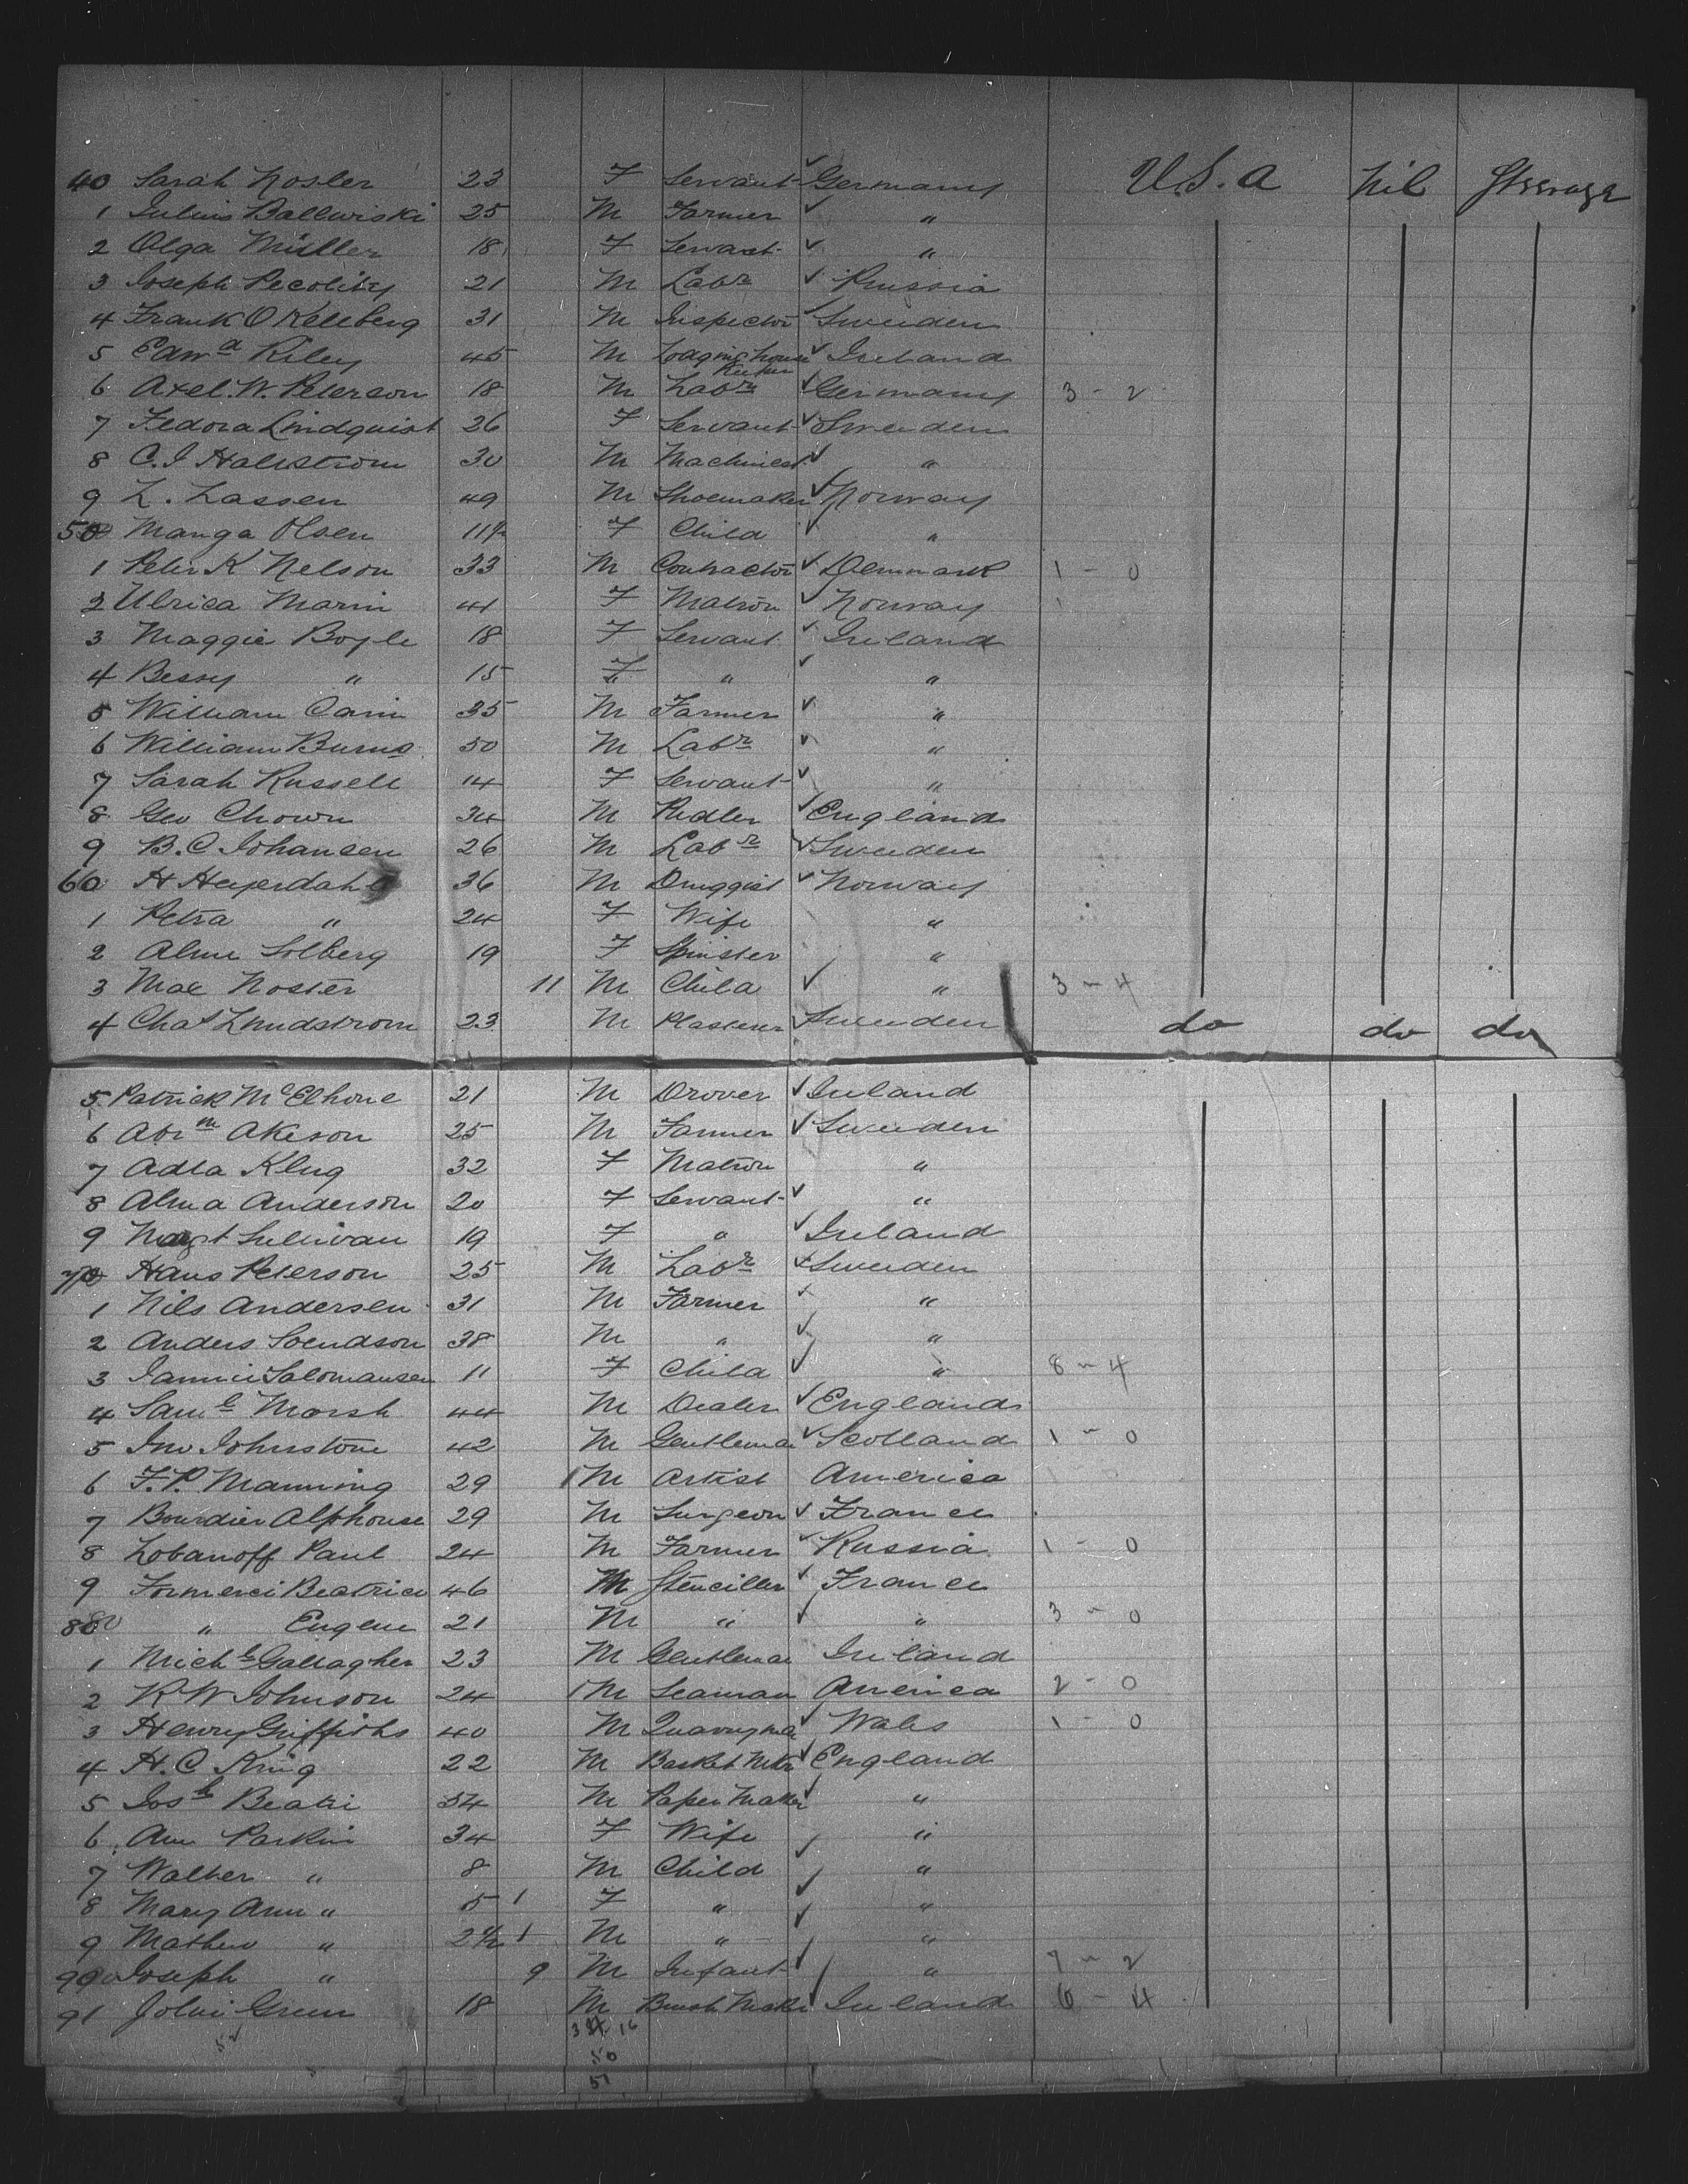 40 Sarah Nosler 23 F Servant ✓ Germany U.S.A Nil Steerage
1 Julius Ballwiski 25 M Farmer ✓ "
2 Olga Müller 18 F Servant ✓ "
3 Joseph Pecolitzy 21 M Labr ✓ Prussia
4 Frank O Kellberg 31 M Inspector ✓ Sweden
5 Edwd Riley 45 M Lodging house Keeper ✓ Ireland
6 Axel. W. Peterson 18 M Labr ✓ Germany 3 - 2
7 Fedora Lindquist 26 F Servant ✓ Sweden
8 C. J Hallstrom 30 M Machinest ✓ "
9 L. Lassen 49 M Shoemaker ✓ Norway
50 Manga Olsen 11½ F Child ✓ "
1 Peter K Nelson 33 M Contractor ✓ Denmark 1 - 0
2 Ulrica Marin 41 F Matron ✓ Norway 1
3 Maggie Boyle 18 F Servant ✓ Ireland
4 Bessy " 15 F " ✓ "
5 William Cain 35 M Farmer ✓ "
6 William Burns 50 M Labr ✓ "
7 Sarah Russell 14 F Servant ✓ "
8 Geo Chown 34 M Pedler ✓ England
9 B. C Johansen 26 M Labr ✓ Sweden
60 H Heyerdahl 36 M Druggist ✓ Norway
1 Petra " 24 F Wife "
2 Alme Solberg 19 F Spinster "
3 Max Noster 11 M Child ✓ " 3 - 4
4 Chas Lundstrom 23 M Plasterer ✓ Sweden do do do
5 Patrick McElhone 21 M Drover ✓ Ireland
6 Abrm Akeson 25 M Farmer ✓ Sweden
7 Adla Klug 32 F Matron "
8 Alma Anderson 20 F Servant ✓ "
9 Margt Sullivan 19 F " ✓ Ireland
70 Hans Peterson 25 M Labr ✓ Sweden
1 Nils Andersen 31 M Farmer ✓ "
2 Anders Svendson 38 M " ✓ "
3 Jannie Salomansen 11 F Child ✓ " 8 - 4
4 Saml Marsh 44 M Dealer ✓ England
5 Jno Johnstone 42 M Gentleman ✓ Scotland 1 - 0
6 F. P. Manning 29 1 M Artist America
7 Bourdier Alphonse 29 M Surgeon ✓ France
8 Lobanoff Paul 24 M Farmer ✓ Russia 1 - 0
9 Formerci Beatrice 46 M Stenciller ✓ France
80 " Eugene 21 M " ✓ " 3 - 0
1 Michl Gallagher 23 M Gentleman Ireland
2 R W Johnson 24 1 M Seaman America 2 - 0
3 Henry Griffiths 40 M Quarryma ✓ Wales 1 - 0
4 H. C King 22 M Basket Mkr ✓ England
5 Josh Beatie 54 M Paper Maker ✓ "
6 Ann Parkin 34 F Wife ✓ "
7 Walter " 8 M Child ✓ "
8 Mary Ann " 5 1 F " ✓ "
9 Mathew " 2½ 1 M " ✓ "
90 Joseph " 9 M Infant ✓ " 7 - 2
91 John Green 18 M Brush Maker ✓ Ireland 6 - 4
16
50
51